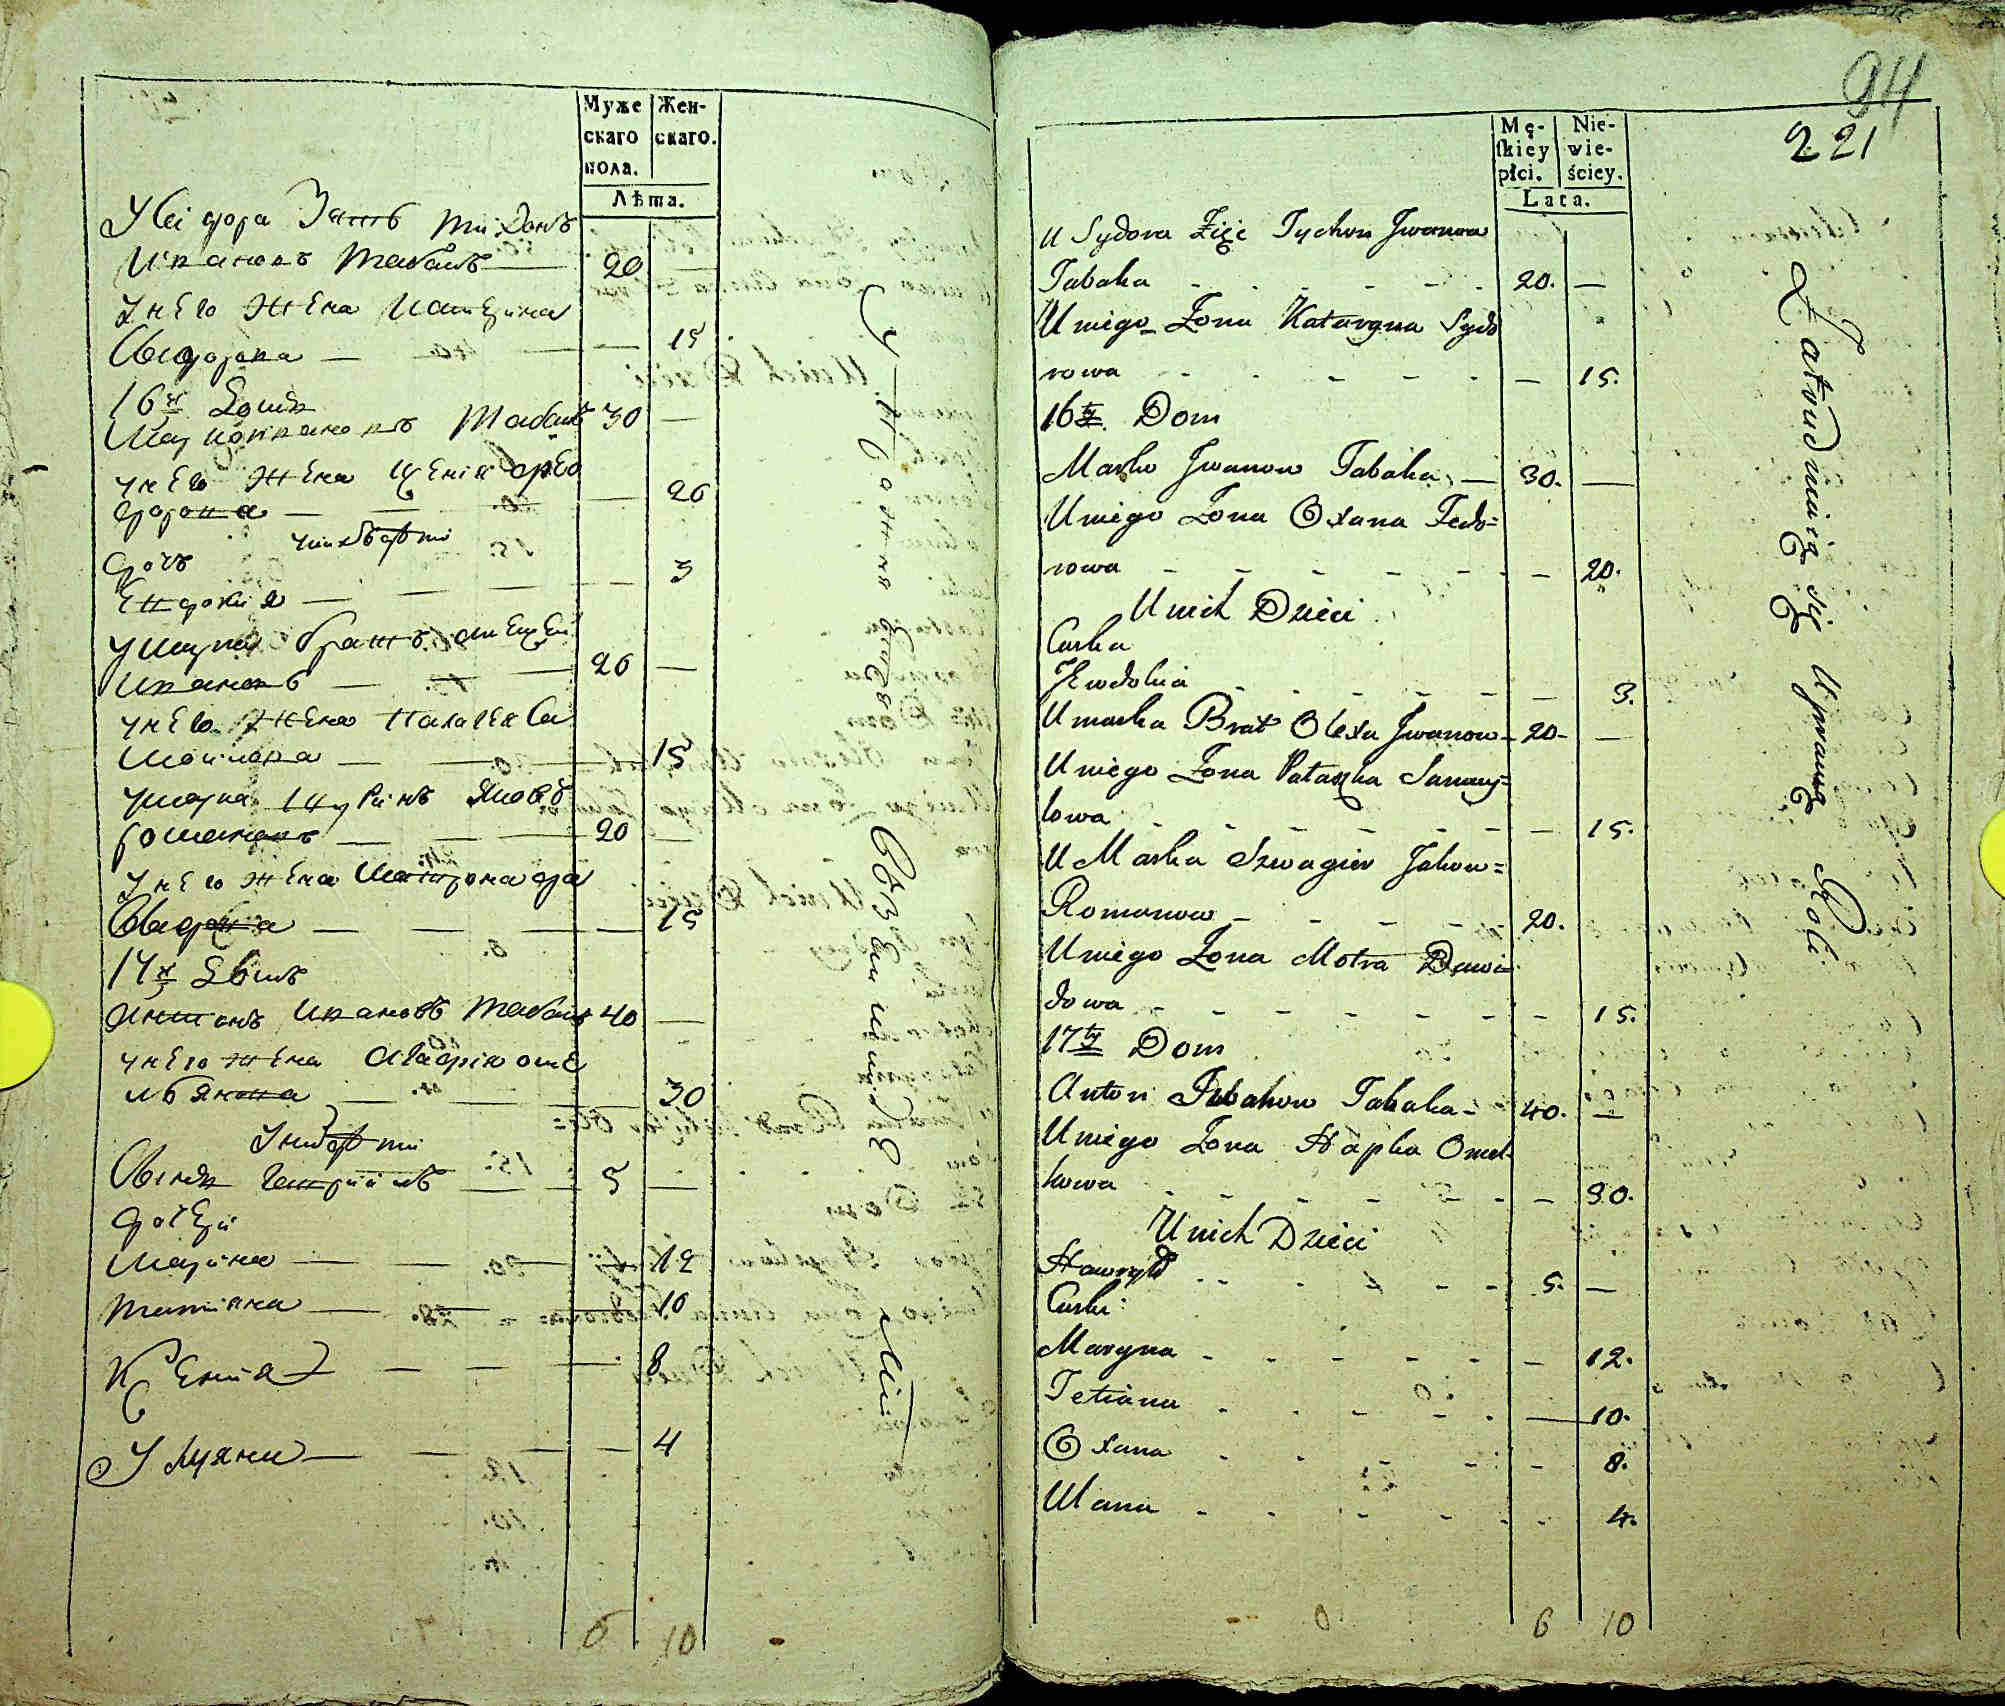 Муже
скаго
пола.
Жен-
скаго.
Лѣта.
У Сидора Зять Тихонъ
Ивановъ Табака 20 —
У него жена Катерина
Сидорова — 15
16й Домъ
Марко Ивановъ Табака 30 —
у него жена Ксенія Фео
дорова — 20
у нихъ дѣти
дочь
Евдокия — 3
у Марка братъ Алексей
Ивановъ — 20 —
у него жена Палагея Са
мойлова — 15
у Марка Шуринъ Яковъ
Романовъ — 20 —
у него жена Матрона Да
видова — 15
17й Домъ
Антонъ Ивановъ Табака 40 —
у него жена Агафія Оме
льянова — 30
У нихъ дѣти
Сынъ Гаврiилъ — 5 —
дочери
Марина — 12
Татiяна — 10
Ксения — 8
Улияна — 4
6 10
94
221
Mę-
skiey
płci.
Nie-
wie-
ściey.
Lata.
U Sydora Zięć Tychon Iwanow
Tabaka 20. —
U niego Zona Kataryna Sydo
rowa — 15.
16ty Dom
Marko Iwanow Tabaka — 30. —
U niego Zona Oxana Fedo=
rowa — 20.
U nich Dzieci
Curka
Jewdokia — 3.
U marka Brat Olexa Iwanow — 20 —
U niego Zona Palaszka Samuy=
łowa — 15.
U Marka Szwagier Jakow=
Romanow — 20.
U niego Zona Motra Dawi=
dowa — 15.
17ty Dom
Anton Tabaka — 40. —
U niego Zona Hapka Omel-
kowa — 30.
U nich Dzieci
Hawryło 5. —
Curki
Maryna — 12.
Tetiana — 10.
Oxana — 8.
Ulana 4.
6 10
Zatrudniaią się Uprawą Roli.